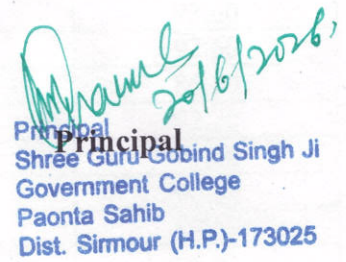 20/6/2026.
Principal
Principal
Shree Guru Gobind Singh Ji
Government College
Paonta Sahib
Dist. Sirmour (H.P.)-173025